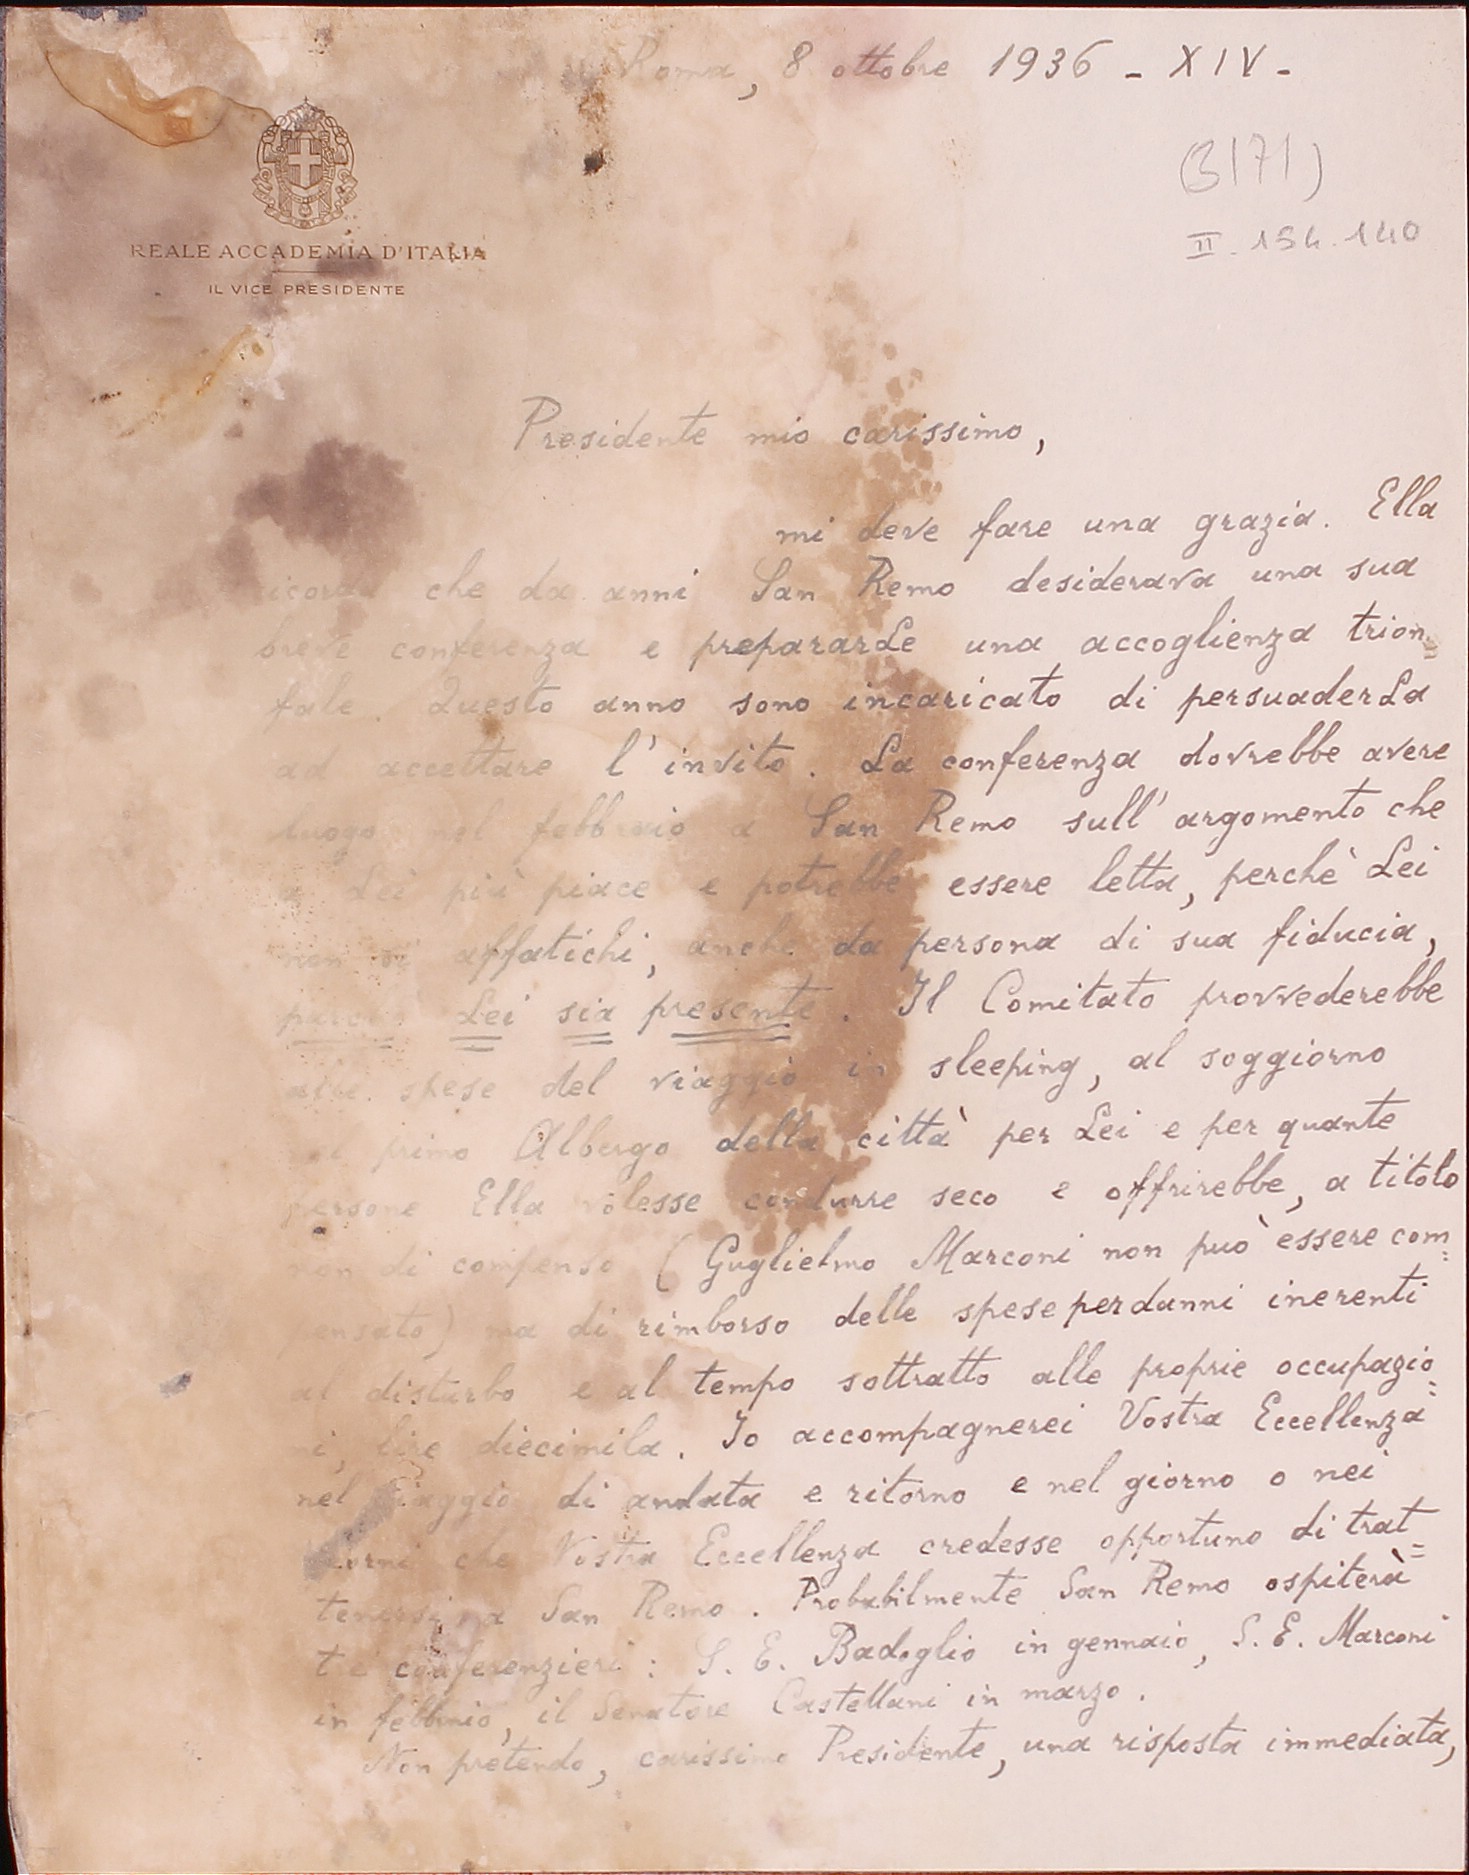 Roma, 8 ottobre 1936 - XIV -
(3171)
II. 154. 140
REALE ACCADEMIA D'ITALIA
IL VICE PRESIDENTE
Presidente mio carissimo,
mi deve fare una grazia. Ella
ricorda che da anni San Remo desiderava una sua
breve conferenza e prepararLe una accoglienza trion=
fale. Questo anno sono incaricato di persuaderLa
ad accettare l'invito. La conferenza dovrebbe avere
luogo nel febbraio a San Remo sull'argomento che
a Lei più piace e potrebbe essere letta, perchè Lei
non si affatichi, anche da persona di sua fiducia,
purchè Lei sia presente. Il Comitato provvederebbe
alle spese del viaggio in sleeping, al soggiorno
primo Albergo della città per Lei e per quante
persone Ella volesse condurre seco e offrirebbe, a titolo
non di compenso (Guglielmo Marconi non può essere com=
pensato) ma di rimborso delle spese per danni inerenti
al disturbo e al tempo sottratto alle proprie occupazio=
ni, lire diecimila. Io accompagnerei Vostra Eccellenza
nel viaggio di andata e ritorno e nel giorno o nei
giorni che Vostra Eccellenza credesse opportuno di trat=
tenersi a San Remo. Probabilmente San Remo ospiterà
tre conferenzieri: S. E. Badoglio in gennaio, S. E. Marconi
in febbraio, il Senatore Castellani in marzo.
Non pretendo, carissimo Presidente, una risposta immediata,